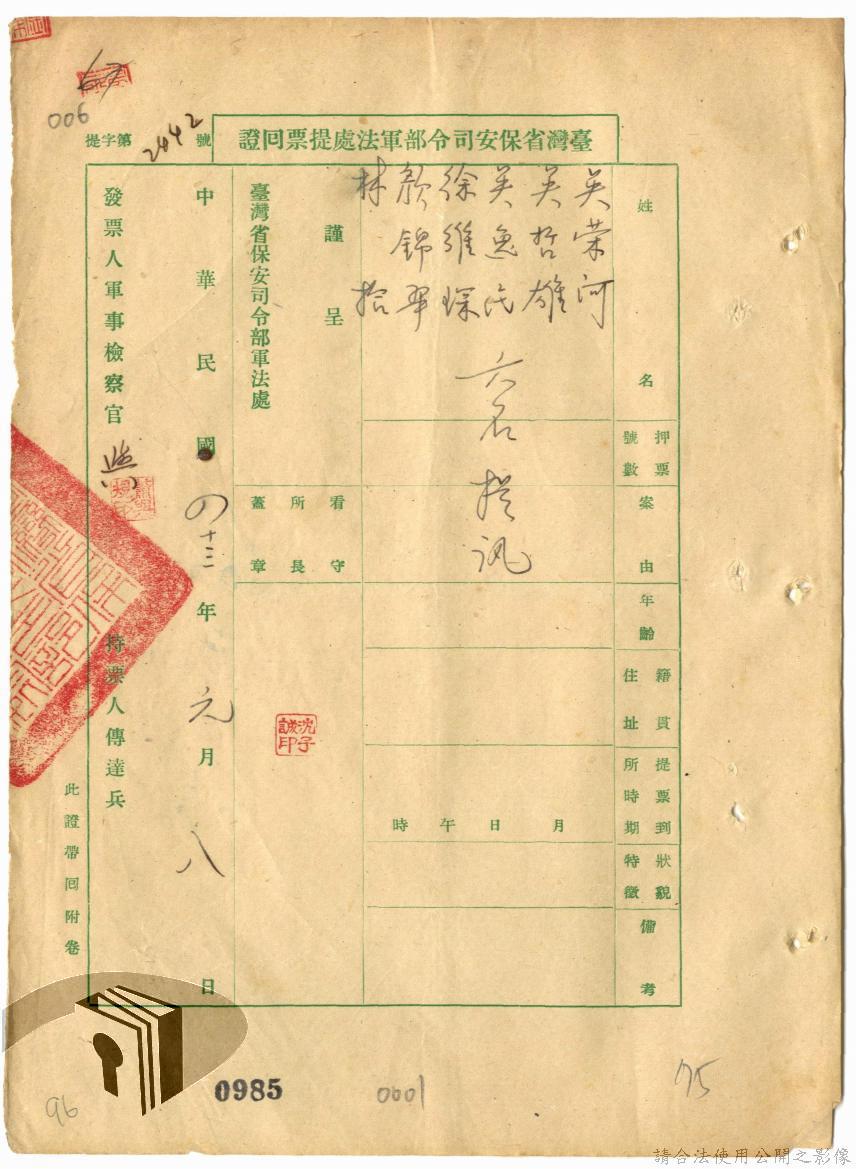 006
臺灣省保安司令部軍法處提票回證
提字第2442號
姓名
吴荣河
吴哲雄
吴逸民
徐維琛
顏錦華
林拾
六名提訊
押票號數
案由
年齡
籍貫住址
提票到所時期
月日午時
狀貌特徵
備考
謹呈
臺灣省保安司令部軍法處
看守所長蓋章
沈子誠印
中華民國四十三年元月八日
發票人軍事檢察官
持票人傳達兵
此證帶回附卷
96
0985
0001
75
請合法使用公開之影像